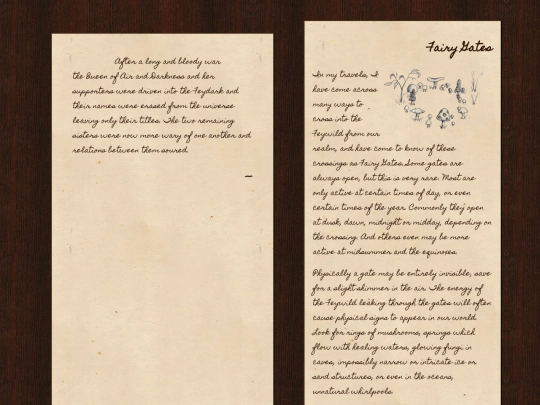 After a long and bloody war
the Queen of Air and Darkness and her
supporters were driven into the Feydark and
their names were erased from the universe
leaving only their titles. The two remaining
sisters were now more wary of one another and
relations between them soured.
Fairy Gates
In my travels, I
have come across
many ways to
cross into the
Feywild from our
realm, and have come to know of these
crossings as Fairy Gates. Some gates are
always open, but this is very rare. Most are
only active at certain times of day, or even
certain times of the year. Commonly they open
at dusk, dawn, midnight or midday, depending on
the crossing. And others even may be more
active at midsummer and the equinoxes.
Physically a gate may be entirely invisible, save
for a slight shimmer in the air. The energy of
the Feywild leaking through the gates will often
cause physical signs to appear in our world.
Look for rings of mushrooms, springs which
flow with healing waters, glowing fungi in
caves, impossibly narrow or intricate ice or
sand structures, or even in the oceans,
unnatural whirlpools.